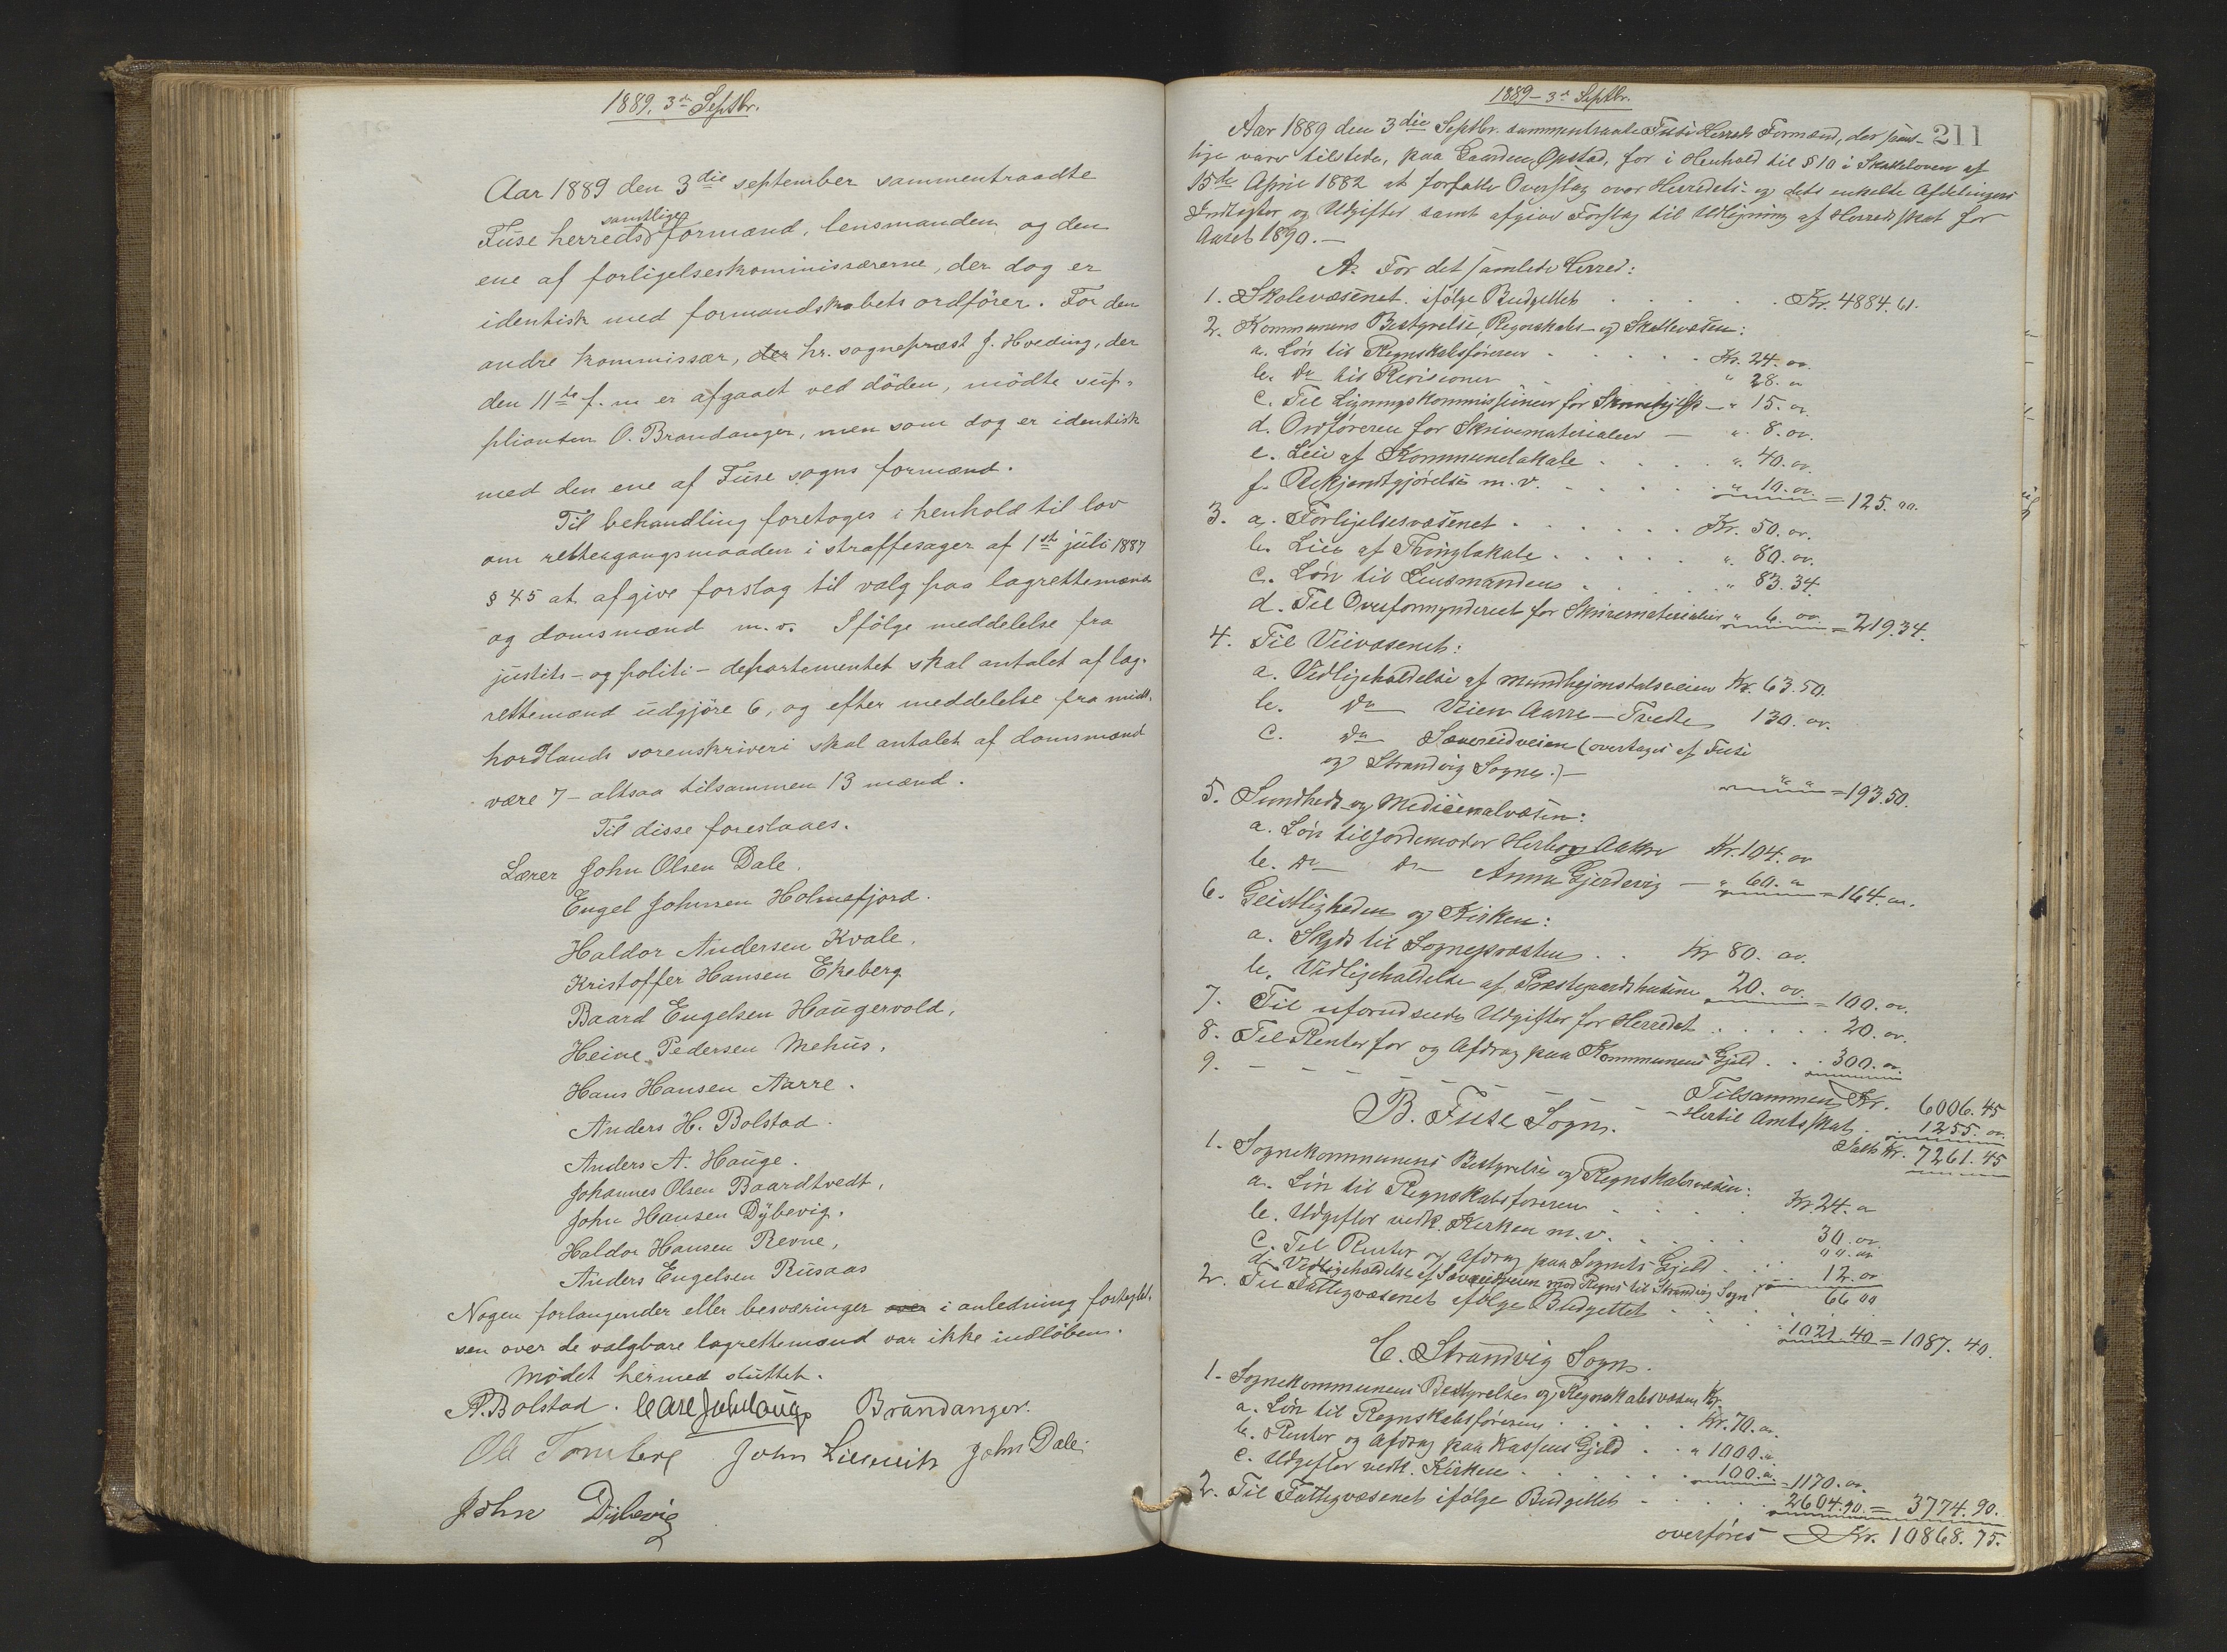 1889. 3die Septbr.
Aar 1889 den 3die september sammentraadte
Fuse herreds samtlige formænd, lensmanden og den
ene af forligelseskommissærerne, der dog er
identisk med formandskabets ordfører. For den
andre kommissær, der hr. sognepræst J. Hveding, der
den 11te f. m er afgaaet ved döden, mödte sup-
plianten O. Brandanger, men som dog er identisk
med den ene af Fuse sogns formænd.
Til behandling foretoges i henhold til lov
om rettergangsmaaden i straffesager af 1ste juli 1887
§ 45 at afgive forslag til valg paa lagrettemænd
og domsmænd m.v. Ifölge meddelelse fra
justits- og politi-departementet skal antalet af lag-
rettemænd udgjöre 6, og efter meddelelse fra midt-
hordlands sorenskriveri skal antalet af domsmænd
være 7 - altsaa tilsammen 13 mænd.
Til disse foreslaaes.
Lærer John Olsen Dale.
Engel Johnsen Holmefjord.
Haldor Andersen Kvale.
Kristoffer Hansen Ekeberg
Baard Engelsen Haugervold,
Heine Pedersen Mehus,
Hans Hansen Aarre.
Anders H. Bolstad.
Anders A. Hauge.
Johannes Olsen Baardtvedt,
John Hansen Dybevig.
Haldor Hansen Revne,
Anders Engelsen Rusaas
Nogen forlangender eller besværinger over i anledning fortegnel-
sen over de valgbare lagrettemænd var ikke indlöben.
Mødet hermed sluttet.
A. Bolstad. Brandanger.
Ole John John Dale
John Dybevig
1889 - 3die Septbr.
211
Aar 1889 den 3die Septbr. sammentraadte Fuse Herreds Formænd, der samt-
lige vare tilstede, paa Gaarden Opstad, for i Henhold til § 10 i Skatteloven af
15de April 1882 at forfatte Overslag over Herredets- og dets enkelte Afdelingers
Indtægter og Udgifter samt afgive Forslag til Udligning af Herredsskat for
Aaret 1890. -
A. For det samlede Herred:
1. Skolevæsenet. ifølge Budgettet . . . . . . Kr. 4884.61.
2. Kommunens Bestyrelse, Regnskabs- og Skattevæsen:
a. Løn til Regnskabsføreren . . . . . Kr. 24. 00.
b. Do til Revisionen " 28. "
c. Til Ligningskommissionen for Skrivehjelp - " 15. 00.
d. Ordføreren for Skrivematerialier - " 8. 00.
e. Leie af Kommunelokale . . . . " 40. 00.
f. Bekjendtgjørelse m. v. . . . . . " 10. 00. = 125. 00.
3. a. Forligelsesvæsenet . . . . . . Kr. 50. 00.
b. Leie af Thinglokale . . . . . " 80. 00.
c. Løn til Lensmanden . . . . . " 83.34.
d. Til Overformynderiet for Skrivematerialier " 6. 00 = 219.34.
4. Til Veivæsenet:
a. Vedligeholdelse af Mundhejmsdalsveien Kr. 63.50.
b. Do Veien Aarre - Tvedte 130. 00.
c. Do Sævereidveien (overtages af Fuse
og Strandvig Sogne.) - " " = 193.50.
5. Sundheds- og Medicinalvæsen:
a. Løn til Jordemoder Herborg Aakre Kr. 104. 00
b. Do Do Anna Gjerdevig - " 60. " = 164. 00.
6. Geistligheden og Kirken:
a. Skyds til Sognepræsten . . Kr 80. 00.
b. Vedligeholdelse af Præstegaardshusene 20. 00. = 100. 00.
7. Til uforudseede Udgifter for Herredet . . . . . 20. 00.
8. Til Renter for og Afdrag paa Kommunens Gjeld . . . 300. 00.
9. - - - - - - - Tilsammen Kr. 6006.45
- Hertil Amtsskat . 1255. 00
Ialt Kr. 7261.45
B. Fuse Sogn.
1. Sognekommunens Bestyrelse og Regnskabsvæsen:
a. Løn til Regnskabsføreren . . . . Kr. 24. 00
b. Udgifter vedk. Kirken m. v. . . . . 30. 00
c. Til Renter og Afdrag paa Sognets Gjeld . . . " " "
d. Vedligeholdelse af Sævereidveien med Regres til Strandvig Sogn . . 12. 00
66 00
2. Til Fattigvæsenet ifølge Budgettet . . . . 1021.40 = 1087.40.
C. Strandvig Sogn.
1. Sognekommunens Bestyrelse og Regnskabsvæsen Kr.
a. Løn til Regnskabsføreren . . . . . Kr. 70. 00.
b. Renter og Afdrag paa Kassens Gjeld . . " 1000. "
c. Udgifter vedk. Kirken . . . . . . 100. 00. = 1170. 00.
2. Til Fattigvæsenet ifølge Budgettet - . . . . 2604.90. = 3774.90.
overføres Kr. 10868.75.